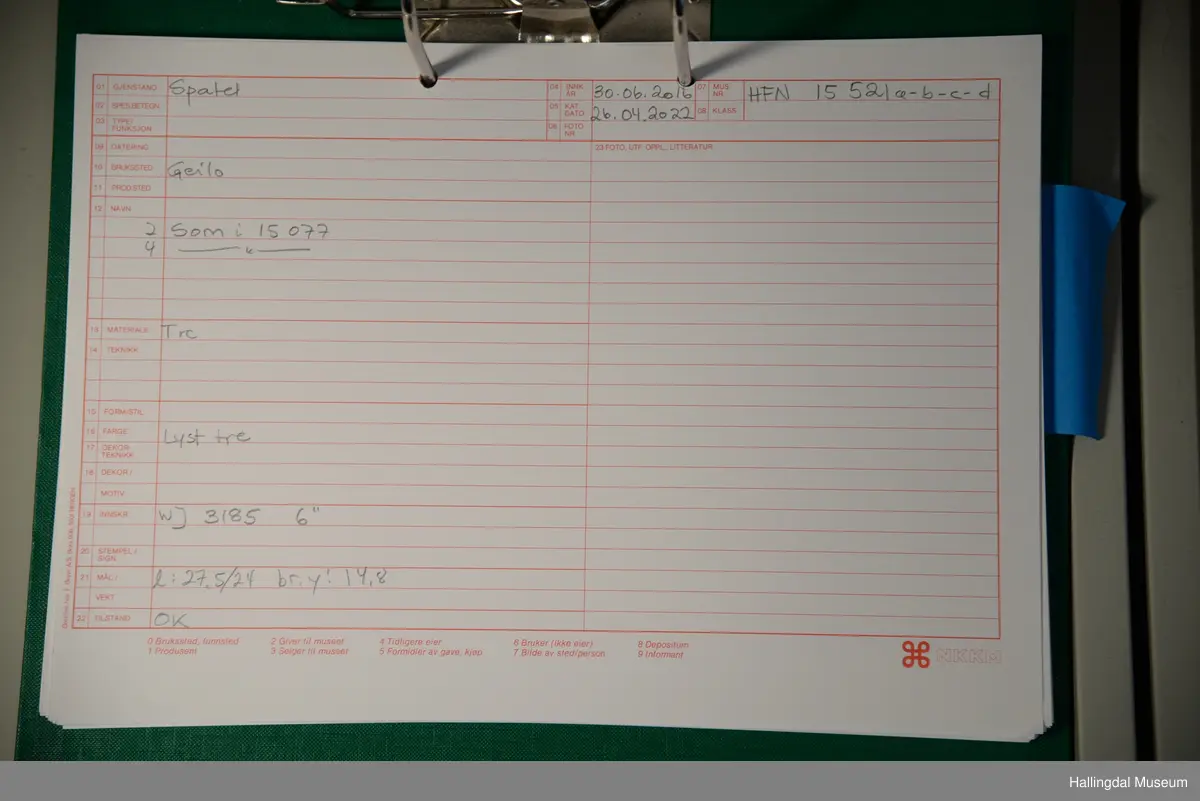 01 GJENSTAND Spatel 04 INNK. ÅR 30.06.2016 07 MUS. NR. HFN 15 521 a-b-c-d
02 SPES.BETEGN. 05 KAT. DATO 26.04.2022 08 KLASS.
03 TYPE/ FUNKSJON 06 FOTO NR.
09 DATERING 23 FOTO, UTF. OPPL., LITTERATUR
10 BRUKSSTED Geilo
11 PROD.STED
12 NAVN
2 Som i 15 077
4 —— " ——
13 MATERIALE Tre
14 TEKNIKK
15 FORM/STIL
16 FARGE Lyst tre
17 DEKOR TEKNIKK
18 DEKOR /
MOTIV
19 INNSKR. WJ 3185 6"
20 STEMPEL / SIGN.
21 MÅL / l: 27,5/24 br. y: 14,8
VEKT
22 TILSTAND OK
0 Brukssted, funnsted 2 Giver til museet 4 Tidligere eier 6 Bruker (ikke eier) 8 Depositum
1 Produsent 3 Selger til museet 5 Formidler av gave, kjøp 7 Bilde av sted/person 9 Informant
NKKM
Hallingdal Museum